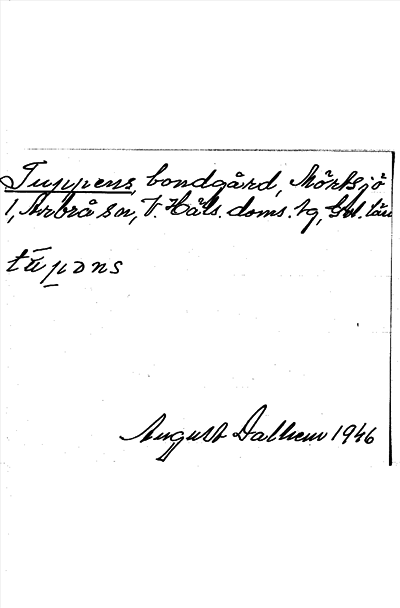 Tuppens, bondgård, Mörtsjö
1, Arbrå sn, V. Häls. doms. tg, Gvl. län
tūpəns
August Dalhem 1946